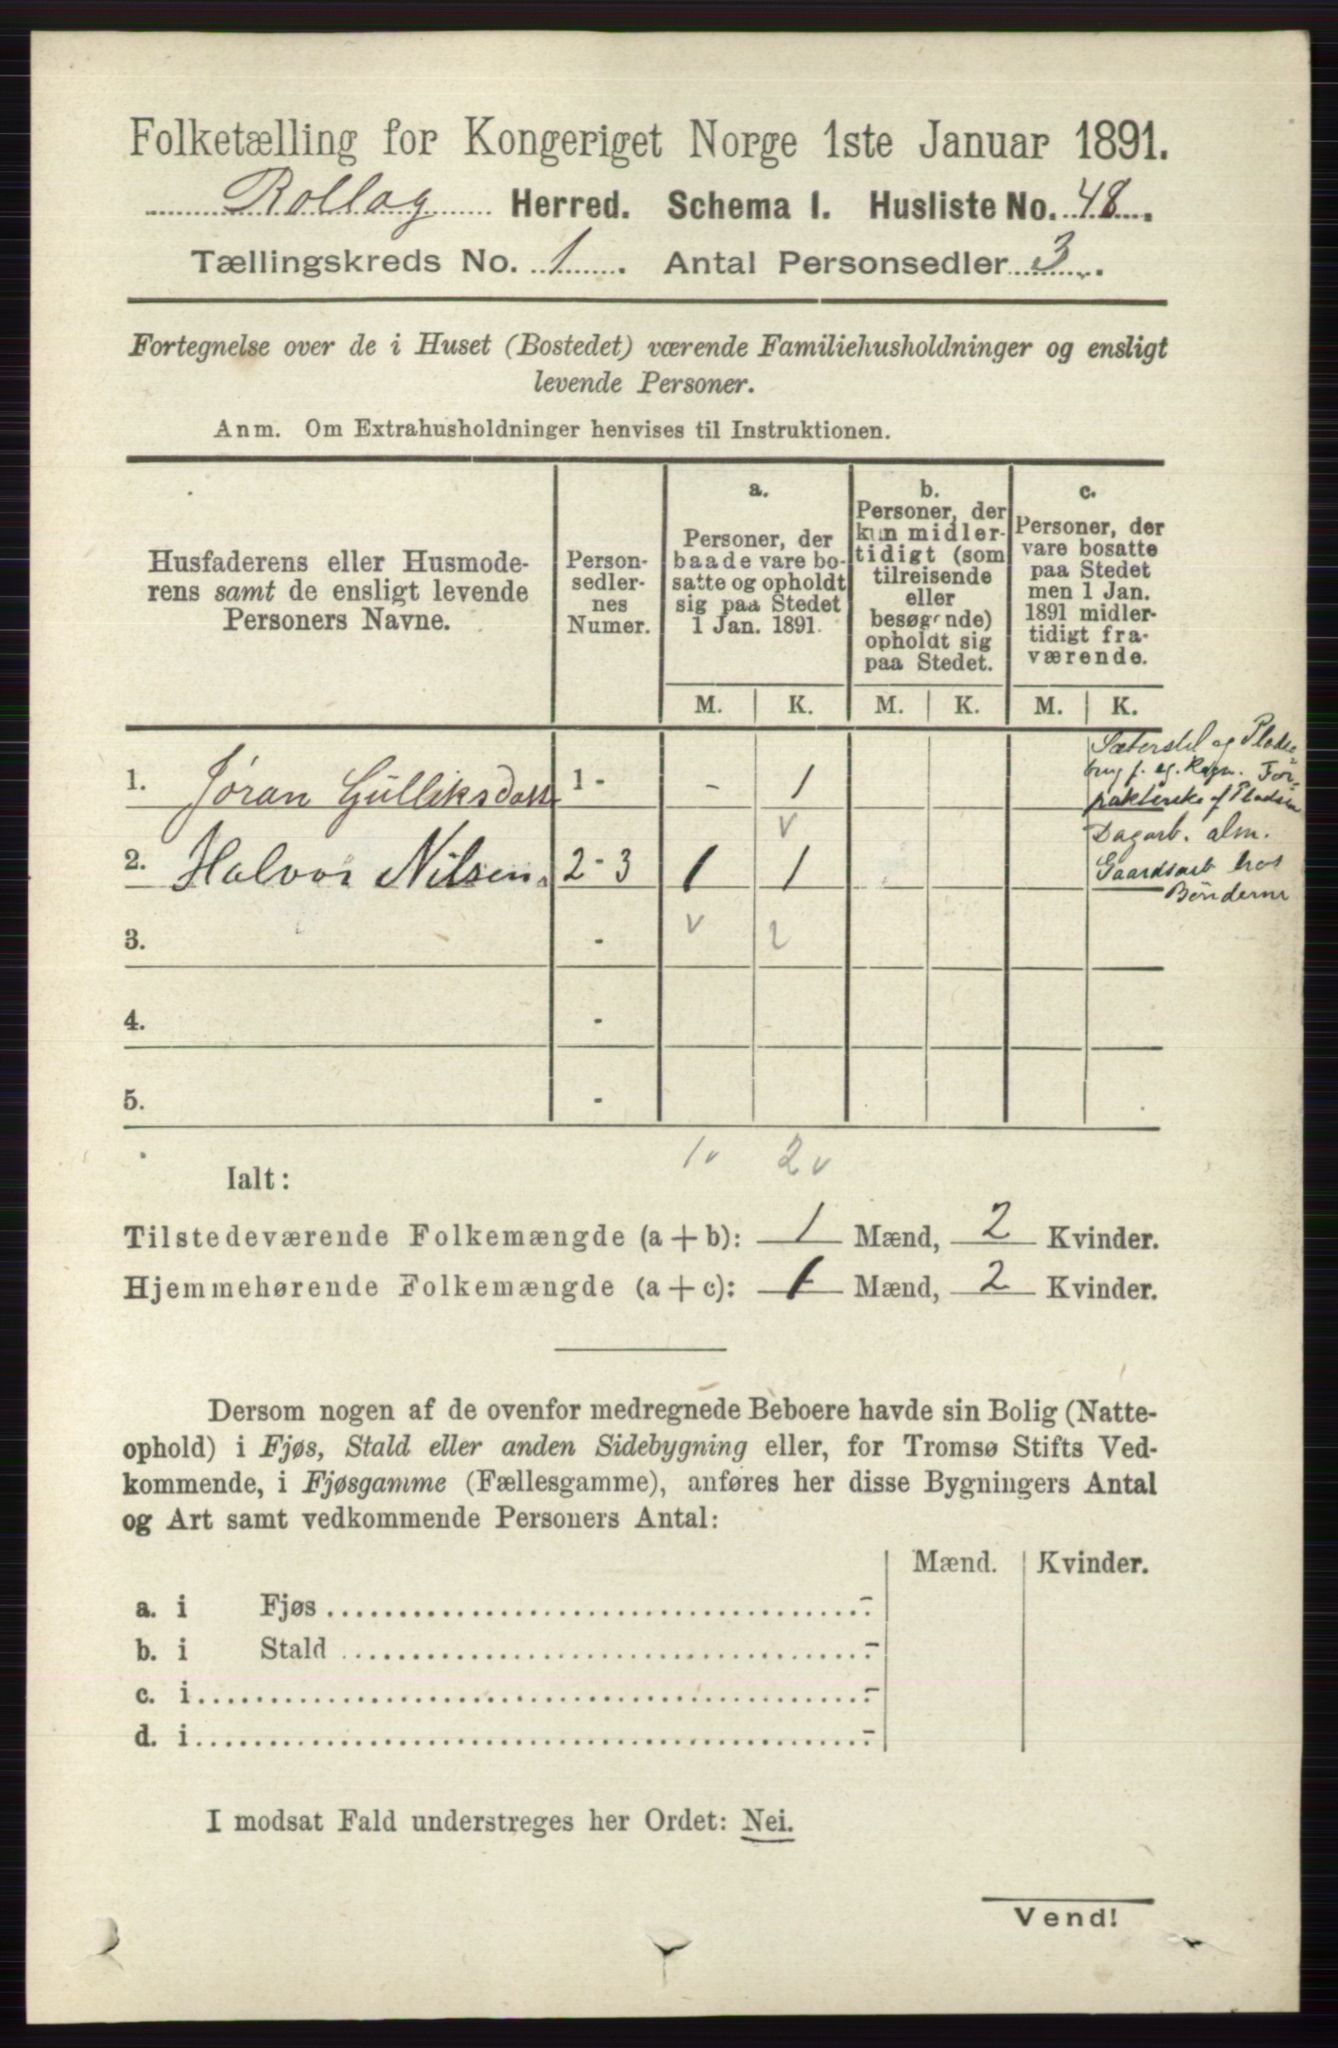 Folketælling for Kongeriget Norge 1ste Januar 1891.
Rollag Herred. Schema I. Husliste No. 48.
Tællingskreds No. 1. Antal Personsedler 3.
Fortegnelse over de i Huset (Bostedet) værende Familiehusholdninger og ensligt
levende Personer.
Anm. Om Extrahusholdninger henvises til Instruktionen.
Husfaderens eller Husmode-
rens samt de ensligt levende
Personers Navne.
Person-
sedler-
nes
Numer.
a.
Personer, der
baade vare bo-
satte og opholdt
sig paa Stedet
1 Jan. 1891.
b.
Personer, der
kun midler-
tidigt (som
tilreisende
eller
besøgende)
opholdt sig
paa Stedet.
c.
Personer, der
vare bosatte
paa Stedet
men 1 Jan.
1891 midler-
tidigt fra-
værende.
M. K. M. K. M. K.
1. Jøran Gulliksdatt 1 - - 1
Sæterstel og Plads
brug f. eg. Regn. For-
pakterske af Pladsen
v
2. Halvor Nilsen. 2-3 1 1
Dagarb. alm.
Gaardsarb hos
Bønderne
3. - v 2
4. -
5. -
1v 2v
Ialt:
Tilstedeværende Folkemængde (a + b): 1 Mænd, 2 Kvinder.
Hjemmehørende Folkemængde (a + c): 1 Mænd, 2 Kvinder.
Dersom nogen af de ovenfor medregnede Beboere havde sin Bolig (Natte-
ophold) i Fjøs, Stald eller anden Sidebygning eller, for Tromsø Stifts Ved-
kommende, i Fjøsgamme (Fællesgamme), anføres her disse Bygningers Antal
og Art samt vedkommende Personers Antal:
Mænd. Kvinder.
a. i Fjøs -
b. i Stald -
c. i -
d. i -
I modsat Fald understreges her Ordet: Nei.
Vend!